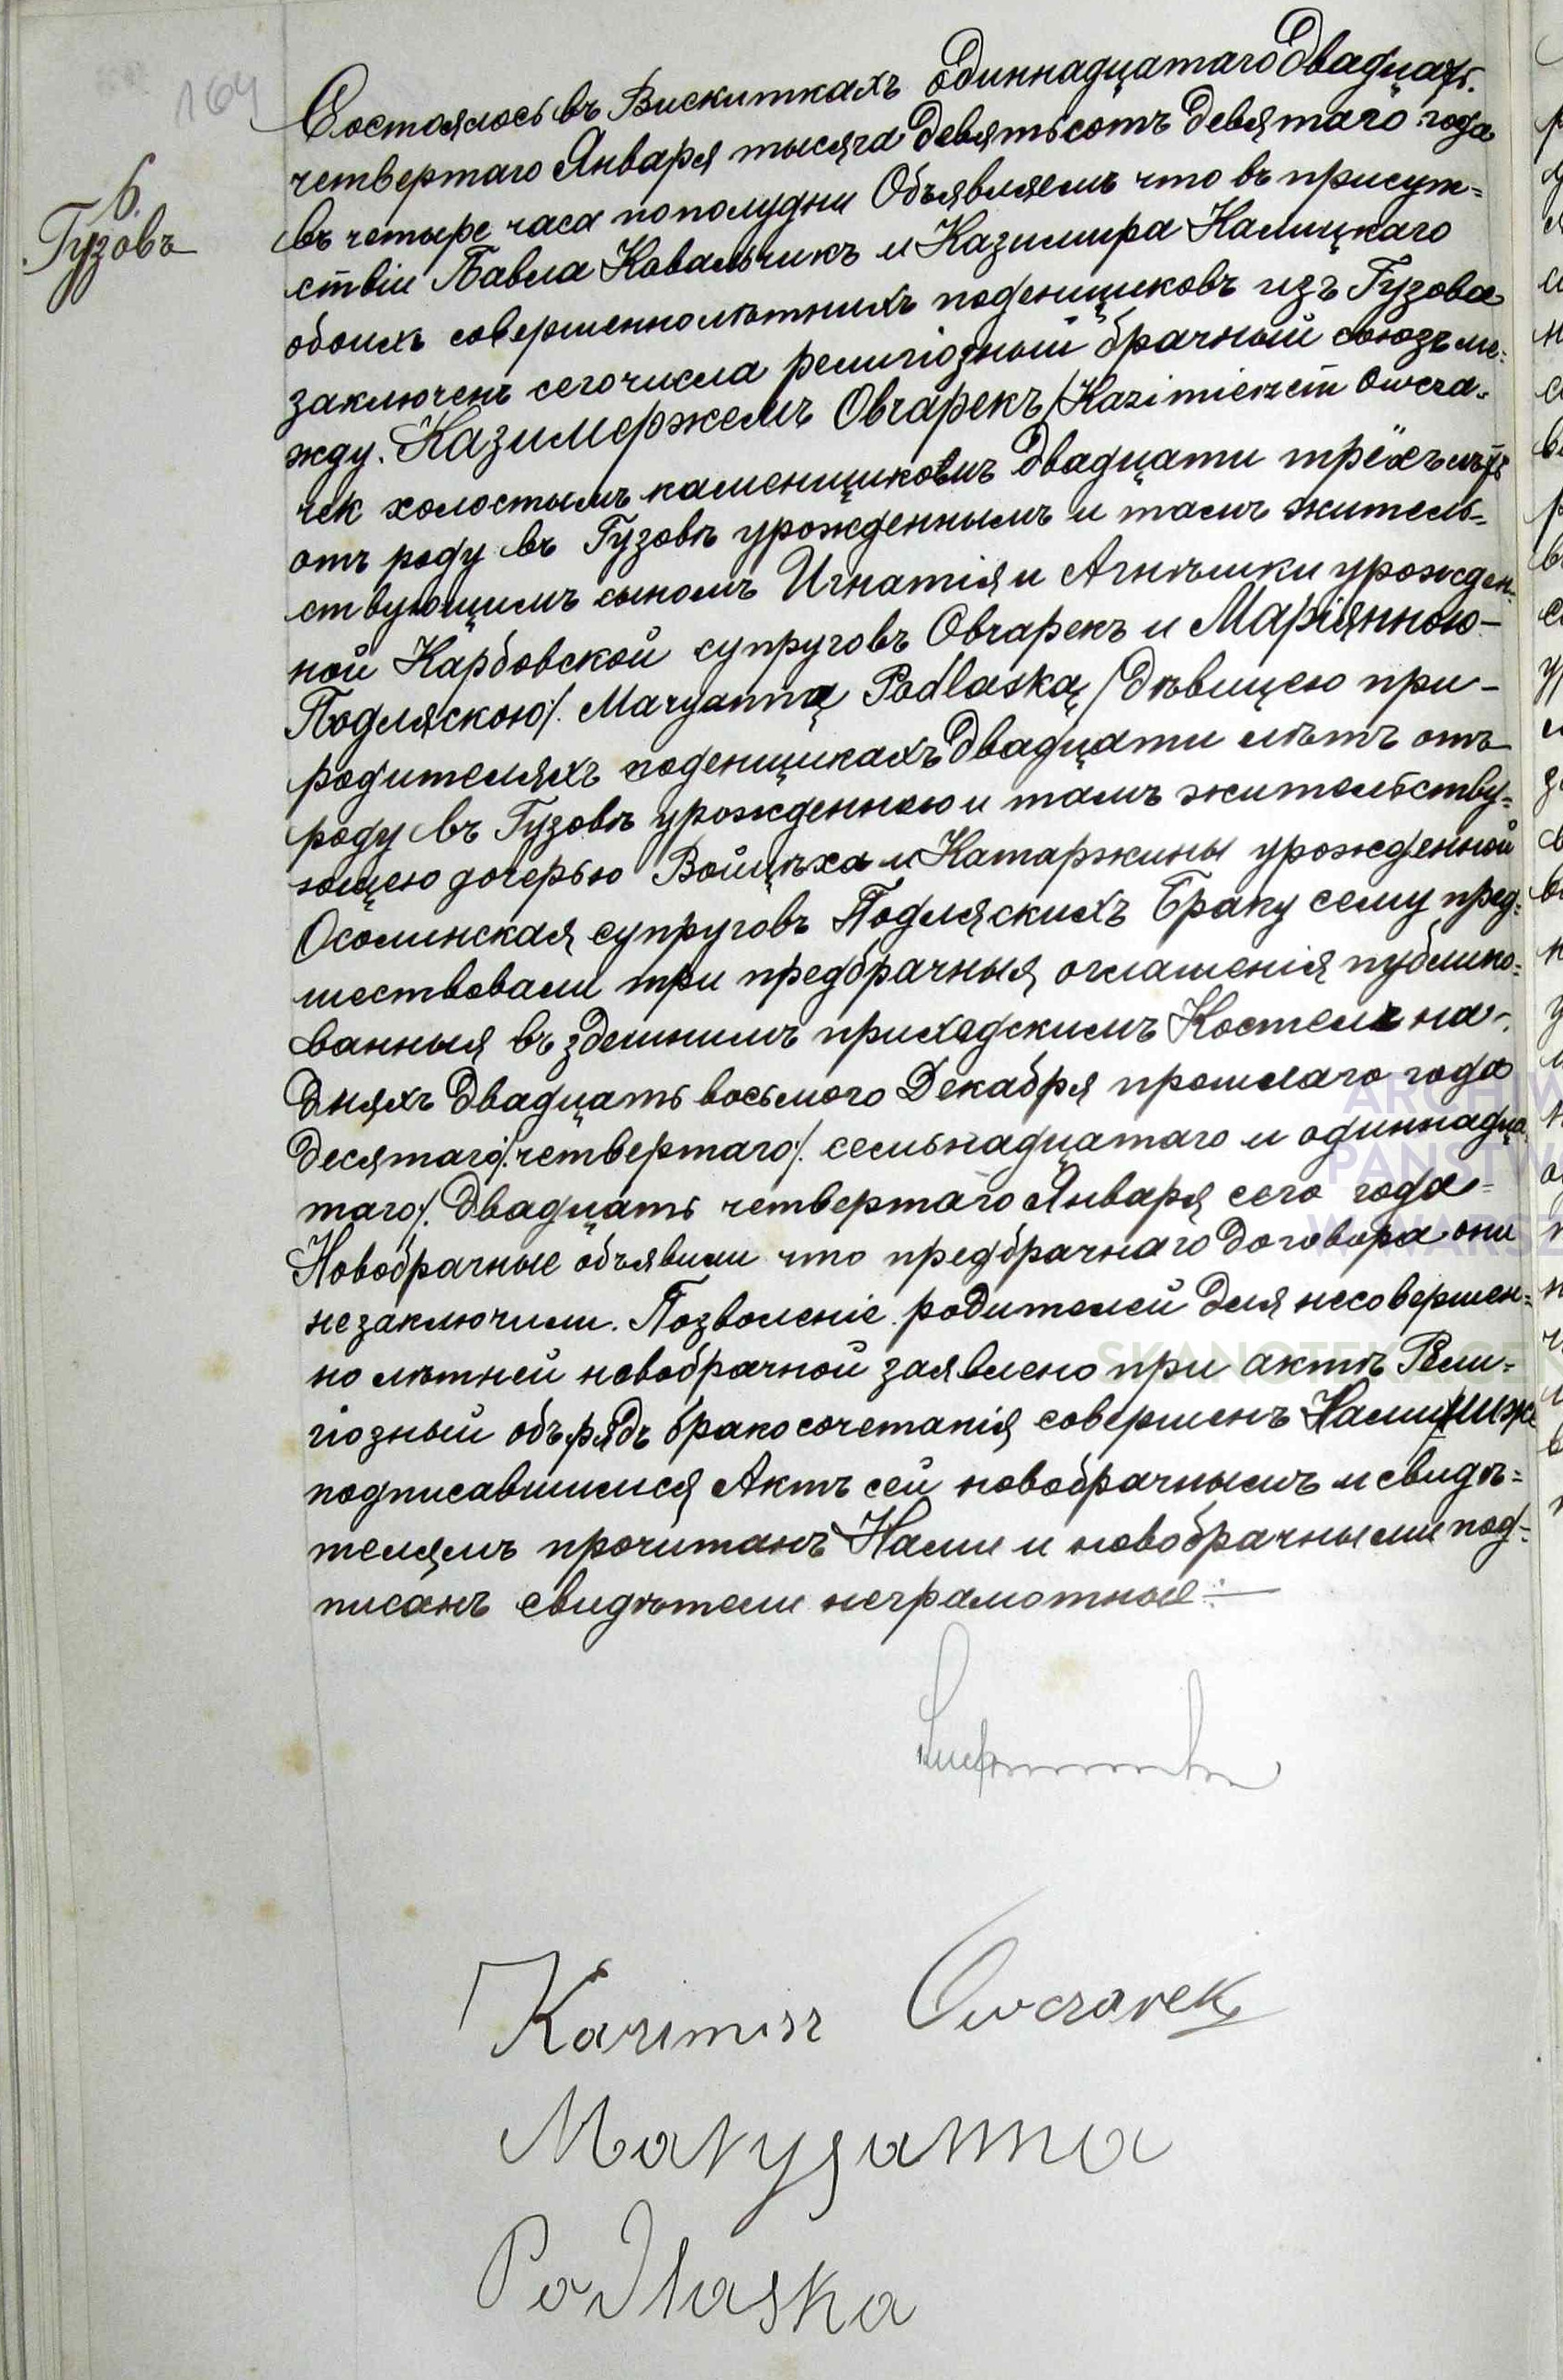 164
6.
Гузовъ
Состоялось въ Вискиткахъ одиннадцатаго двадцать
четвертаго Января тысяча девятьсотъ девятаго года
въ четыре часа пополудни Объявляемъ что въ присут=
ствіи Павла Ковальчикъ и Казимира Калицкаго
обоихъ совершеннолѣтнихъ поденщиковъ изъ Гузова
заключенъ сего числа религіозный брачный союзъ ме=
жду. Казимержемъ Овчарекъ /Kazimierzem Owcza-
rek холостымъ каменщикомъ двадцати трёхъ лѣтъ
отъ роду въ Гузовѣ урожденнымъ и тамъ житель=
ствующимъ сыномъ Игнатія и Агнѣшки урожден-
ной Карбовской супруговъ Овчарекъ и Маріянною-
Подляскою/. Maryanną Podlaską / дѣвицею при-
родителяхъ поденщикахъ двадцати лѣтъ отъ
роду въ Гузовѣ урожденною и тамъ жительству=
ющею дочерью Войцѣха и Катаржины урожденной
Осолинская супруговъ Подляскихъ Браку сему пред=
шествовали три предбрачныя оглашенія публико=
ванныя въ здешнимъ приходскимъ Костелѣ на-
дняхъ двадцать восьмого Декабря прошлаго года
десятаго/. четвертаго/. семьнадцатаго и одиннадца
таго/. двадцать четвертаго Января сего года=
Новобрачные объявили что предбрачнаго договора они
не заключили. Позволеніе родителей для несовершен=
нолѣтней новобрачной заявлено при актѣ Рели=
гіозный обърядъ бракосочетанія совершенъ Нами ниже
подписавшимися Актъ сей новобрачнымъ и свидѣ=
телямъ прочитанъ Нами и новобрачными под=
писанъ свидѣтели неграмотные
Kazimirz Owczarek
Maryjanna
Podlaska
ARCHIW
PAŃSTW
W WARSZ